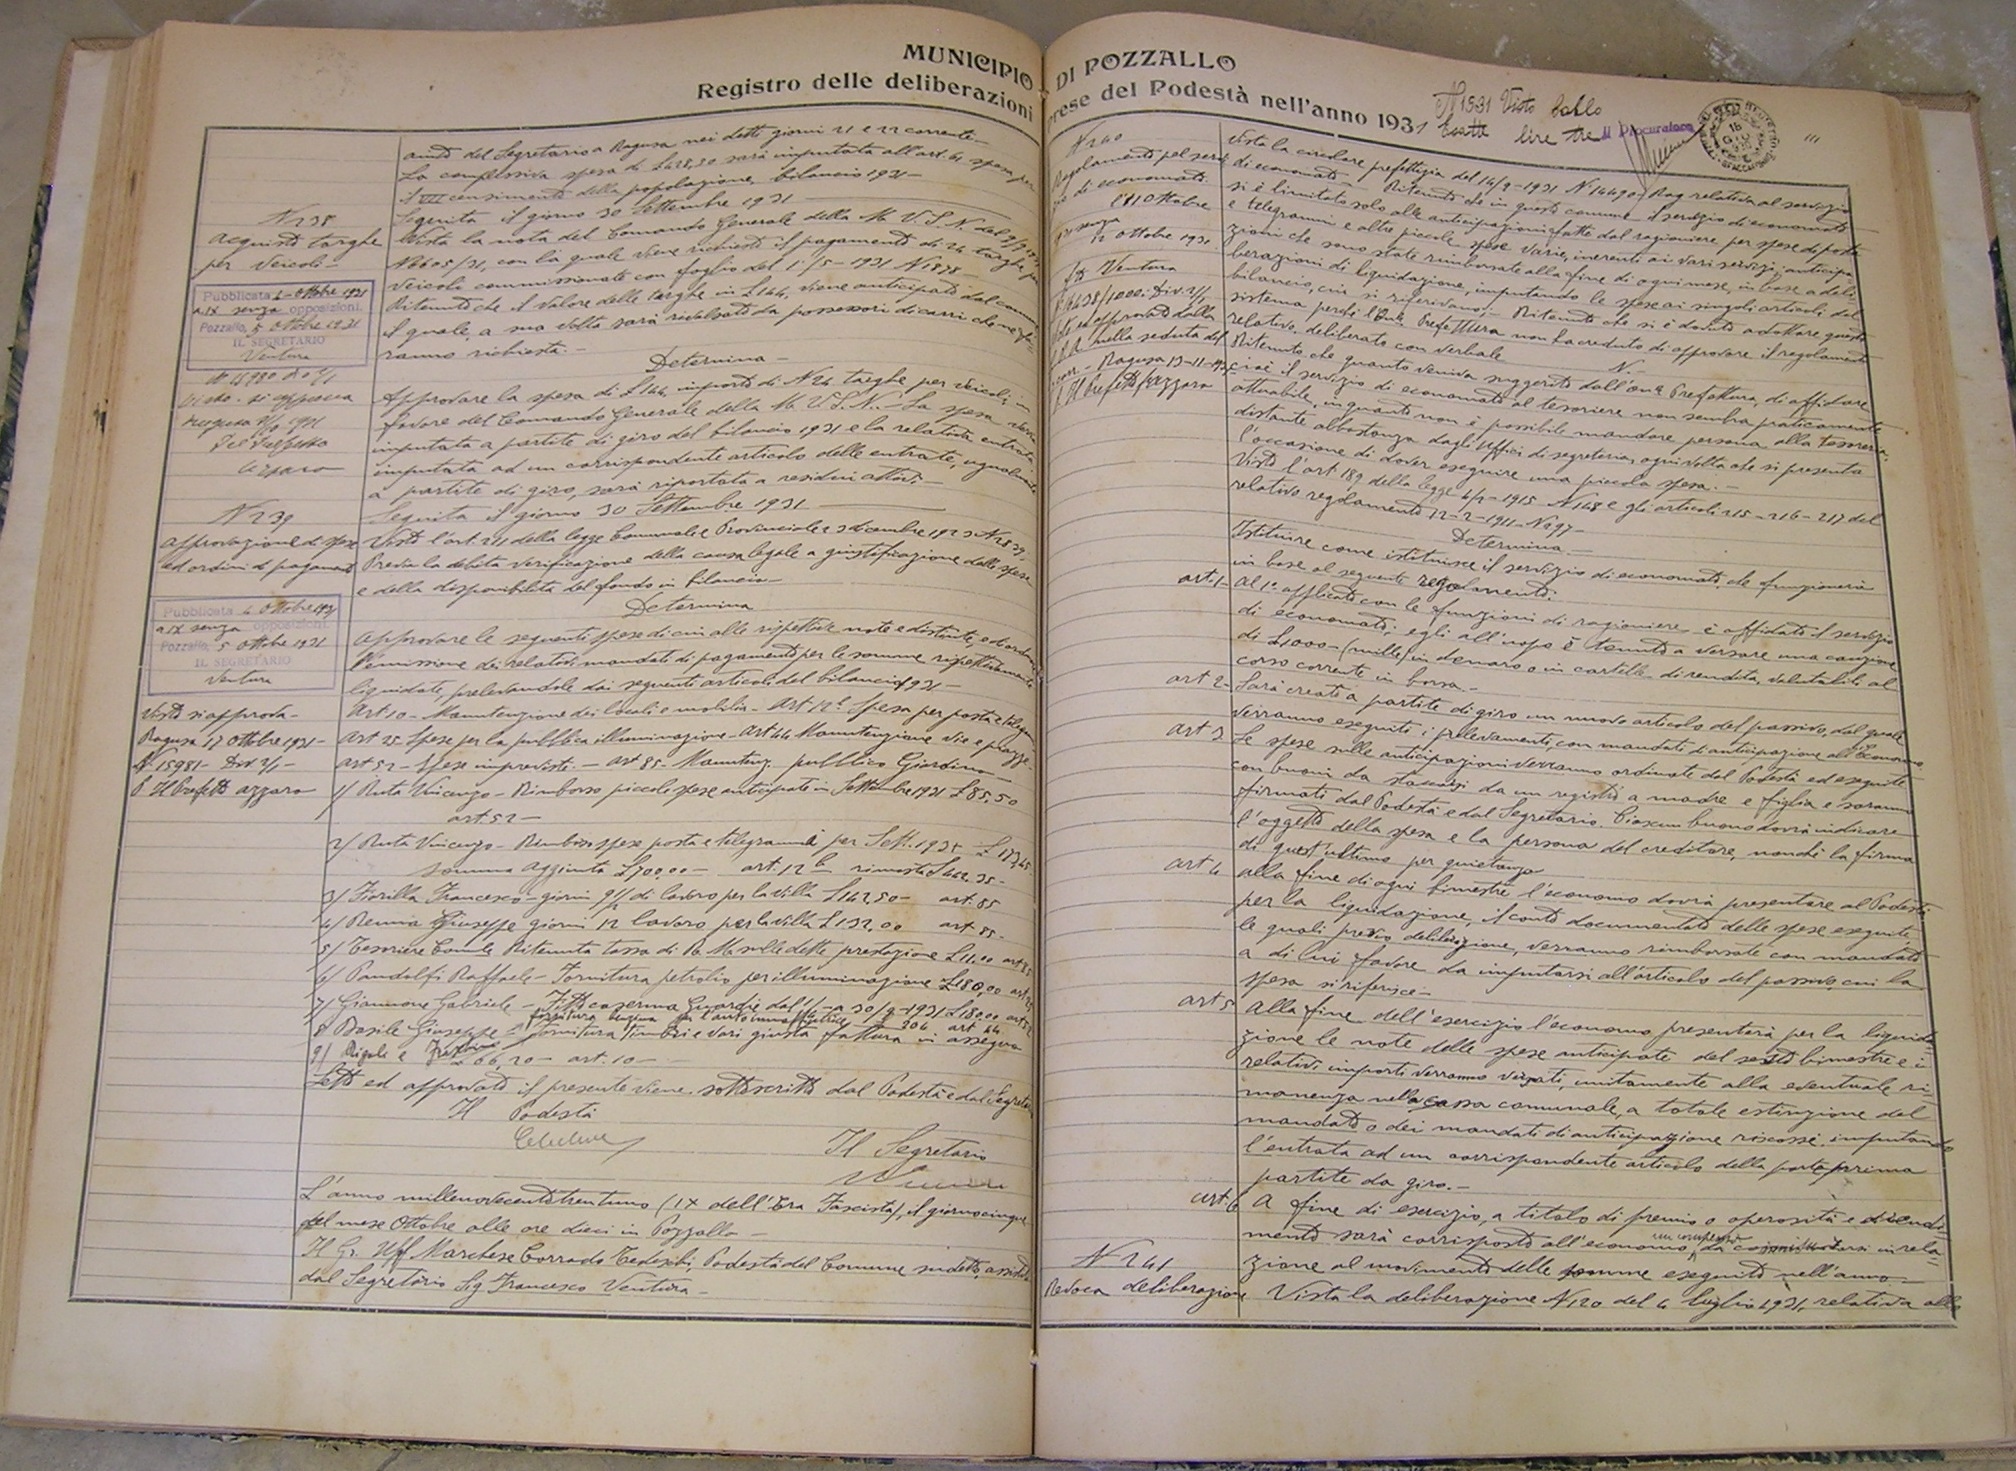 MUNICIPIO DI POZZALLO
Registro delle deliberazioni prese del Podestà nell'anno 1931
N 238
acquisto targhe
per veicoli -
Pubblicata 4 Ottobre 1931
a. IX senza opposizioni.
Pozzallo, 5 Ottobre 1931
IL SEGRETARIO
Ventura
N 239
approvazione di spese
ed ordini di pagamento
Pubblicata 4 Ottobre 1931
a IX senza opposizioni.
Pozzallo, 5 Ottobre 1931
IL SEGRETARIO
Ventura
Visto si approva -
Ragusa 17 Ottobre 1931 -
N 15981 - Div 2/1 -
P. Il Prefetto azzaro
del Segretario a Ragusa nei detti giorni 21 e 22 corrente -
La complessiva spesa di sarà imputata all'art. spesa per
il VII censimento della popolazione, bilancio 1931 -
Seguita il giorno 30 Settembre 1931
Vista la nota del Comando Generale della M. V. S. N. del
N 6605/31, con la quale viene richiesto il pagamento di 24 targhe per
veicoli commissionate con foglio del 1/5 - 1931 N 1878 -
Ritenuto che il valore delle targhe in L 144, viene anticipato dal comune
il quale, a sua volta sarà rivalsato da possessori di carri che ne fa-
ranno richiesta. -
Determina -
Approvare la spesa di L 144 importo di N 24 targhe per veicoli, in
favore del Comando Generale della M. V. S. N. - La spesa verrà
imputata a partite di giro del bilancio 1931 e la relativa entrata
imputata ad un corrispondente articolo delle entrate, ugualmente
a partite di giro, sarà riportata a residui attivi -
Seguita il giorno 30 Settembre 1931
Visto l'art. 211 della legge Comunale e Provinciale
Previa la debita verificazione della causa legale a giustificazione delle spese
e della disponibilità del fondo in bilancio -
Determina
approvare le seguenti spese di cui alle rispettive note e distinte, ed ordina
l'emissione dei relativi mandati di pagamento per le somme rispettivamente
liquidate, prelevandole dai seguenti articoli del bilancio 1931 -
art 10 - Manutenzione dei locali e mobilia - art 12 Spesa per posta e telegrammi
art 25 Spese per la pubblica illuminazione - art 44 Manutenzione vie e piazze -
art 52 - Spese impreviste. - art 85 - Manutenz. pubblico Giardino -
1/ Ruta Vincenzo - Rimborso piccole spese anticipate in Settembre 1931 L 85,50
art. 52 -
2/ Ruta Vincenzo - Rimborso spese posta e telegrammi per Sett.
somma aggiunta L 700,00 - art. 12 rimasta L 442.35 -
3/ Fiorilla Francesco - giorni 9 1/2 di lavoro per la villa L 142,50 - art. 85
4/ Giuseppe giorni 12 lavoro per la villa L 132,00 art. 85 -
5/ Tesoriere Com.le Ritenuta tassa di R. M. sulle dette prestazione L 11.00 art 85
6/ Pandolfi Raffaele - Fornitura petrolio per illuminazione L 180,00 art 25
7/ Giannone Gabriele - fitto caserma Guardie dal a 30/9 - 1931 L 180.00
8 Basile Giuseppe - fornitura benzina per l'autoinnaffiatrice 306 art 44
9/ Rigoli e fornitura timbri e vari giusta fattura in assegno
66,20 - art. 10 -
Letto ed approvato il presente viene sottoscritto dal Podestà e dal Segretario
Il Podestà
Il Segretario
L'anno millenovecentotrentuno (IX dell'Era Fascista), il giorno cinque
del mese Ottobre alle ore dieci in Pozzallo -
Il Gr. Uff Marchese Corrado Tedeschi, Podestà del Comune sudetto, assistito
dal Segretario Sig Francesco Ventura -
N 1531 Visto bollo
Esatte lire tre
Il Procuratore
N 240
Regolamento pel servi
zio di economato.
12 Ottobre 1931
Ventura
Ragusa 13-11-931
P. Il Prefetto azzaro
Vista la circolare prefettizia del 14/9 - 1931 N 14490 Rag relativa al servizio
di economato - Ritenuto che in questo comune il servizio di economato
si è limitato solo alle anticipazioni fatte dal ragioniere per spese di posta
e telegrammi e altre piccole spese varie, inerenti ai vari servizi, anticipa
zioni che sono state rimborsate alla fine di ogni mese, in base a deli
berazioni di liquidazione, imputando le spese ai singoli articoli del
bilancio, cui si riferivano; - Ritenuto che si è dovuto adottare questo
sistema perchè l'On. Prefettura non ha creduto di approvare il regolamento
relativo, deliberato con verbale N.
Ritenuto che quanto veniva suggerito dall'on. Prefettura, di affidare
cioè il servizio di economato al tesoriere non sembra praticamente
attuabile, in quanto non è possibile mandare persona alla tesoreria,
distante abbastanza dagli uffici di segreteria, ogni volta che si presenta
l'occasione di dover eseguire una piccola spesa. -
Visto l'art 189 della legge 4/2 - 1915 N 148 e gli articoli 215 - 216 - 217 del
relativo regolamento 12 - 2 - 1911 - N 297 -
Determina -
Istituire come istituisce il servizio di economato, che funzionerà
in base al seguente regolamento:
art. 1 - al 1° applicato con le funzioni di ragioniere è affidato il servizio
di economato; egli all'uopo è tenuto a versare una cauzione
di L 1000 - (mille) in denaro o in cartelle di rendita, valutabili al
corso corrente in borsa. -
art 2 - Sarà creato a partite di giro un nuovo articolo del passivo, dal quale
verranno eseguiti i prelevamenti, con mandati di anticipazione all'Economo
art 3 Le spese sulle anticipazioni verranno ordinate dal Podestà ed eseguite
con buoni da staccarsi da un registro a madre e figlia e saranno
firmati dal Podestà e dal Segretario. Ciascun buono dovrà indicare
l'oggetto della spesa e la persona del creditore, nonchè la firma
di quest'ultimo per quietanza
art 4 alla fine di ogni bimestre l'economo dovrà presentare al Podestà
per la liquidazione, il conto documentato delle spese eseguite,
le quali previo deliberazione, verranno rimborsate con mandato
a di lui favore da imputarsi all'articolo del passivo, cui la
spesa si riferisce -
art 5 Alla fine dell'esercizio l'economo presenterà per la liquida
zione le note delle spese anticipate del sesto bimestre e i
relativi importi verranno versati, unitamente alla eventuale ri-
manenza nella cassa comunale, a totale estinzione del
mandato o dei mandati di anticipazione riscossi, imputando
l'entrata ad un corrispondente articolo della parte prima
partite da giro. -
art. 6 A fine di esercizio, a titolo di premio o operosità e di rendi
mento sarà corrisposto all'economo, un compenso da commisurarsi in rela-
zione al movimento delle somme eseguito nell'anno -
N 241
Revoca deliberazione Vista la deliberazione N 120 del 4 luglio 1931, relativa alla